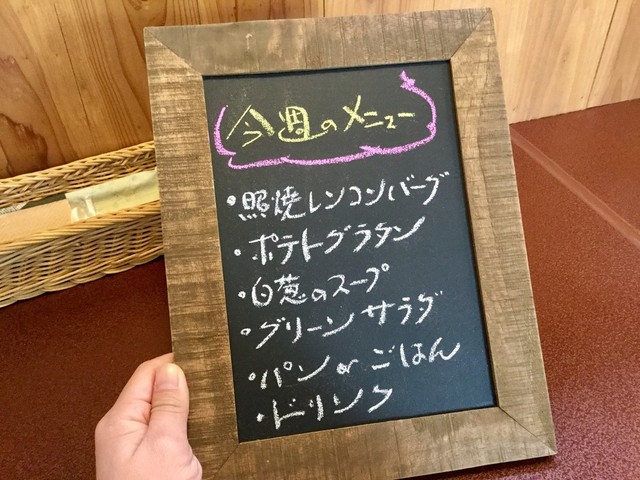 今週のメニュー
・照焼レンコンバーグ
・ポテトグラタン
・白葱のスープ
・グリーンサラダ
・パン or ごはん
・ドリンク